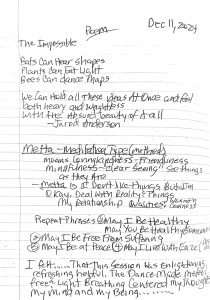 Poem
Dec 11, 2024
The Impossible
Bats Can Hear Shapes
Plants Can Eat Light
Bees Can Dance Maps
We Can Hold All These Ideas At Once And feel
both heavy and weightless
with the Absurd beauty of it all
- Jarod Anderson
Metta - Meditation Type (method)
means Loving Kindness - Friendliness
mindfulness - clear seeing See things
as they Are
- Metta is I Don't like Things But I'm
Okay. Deal With Reality & Things
My Relationship Qualities:
Repeat Phrases ① May I Be Healthy
May You Be Healthy
② May I Be Free From Suffering
③ May I Be at Peace ④ May I Live With Ease
I Am..... That This Session Was Enlightening,
refreshing helpful. The Dance Made me feel
free & Light Breathing Centered my Thought
my mind and my Being........